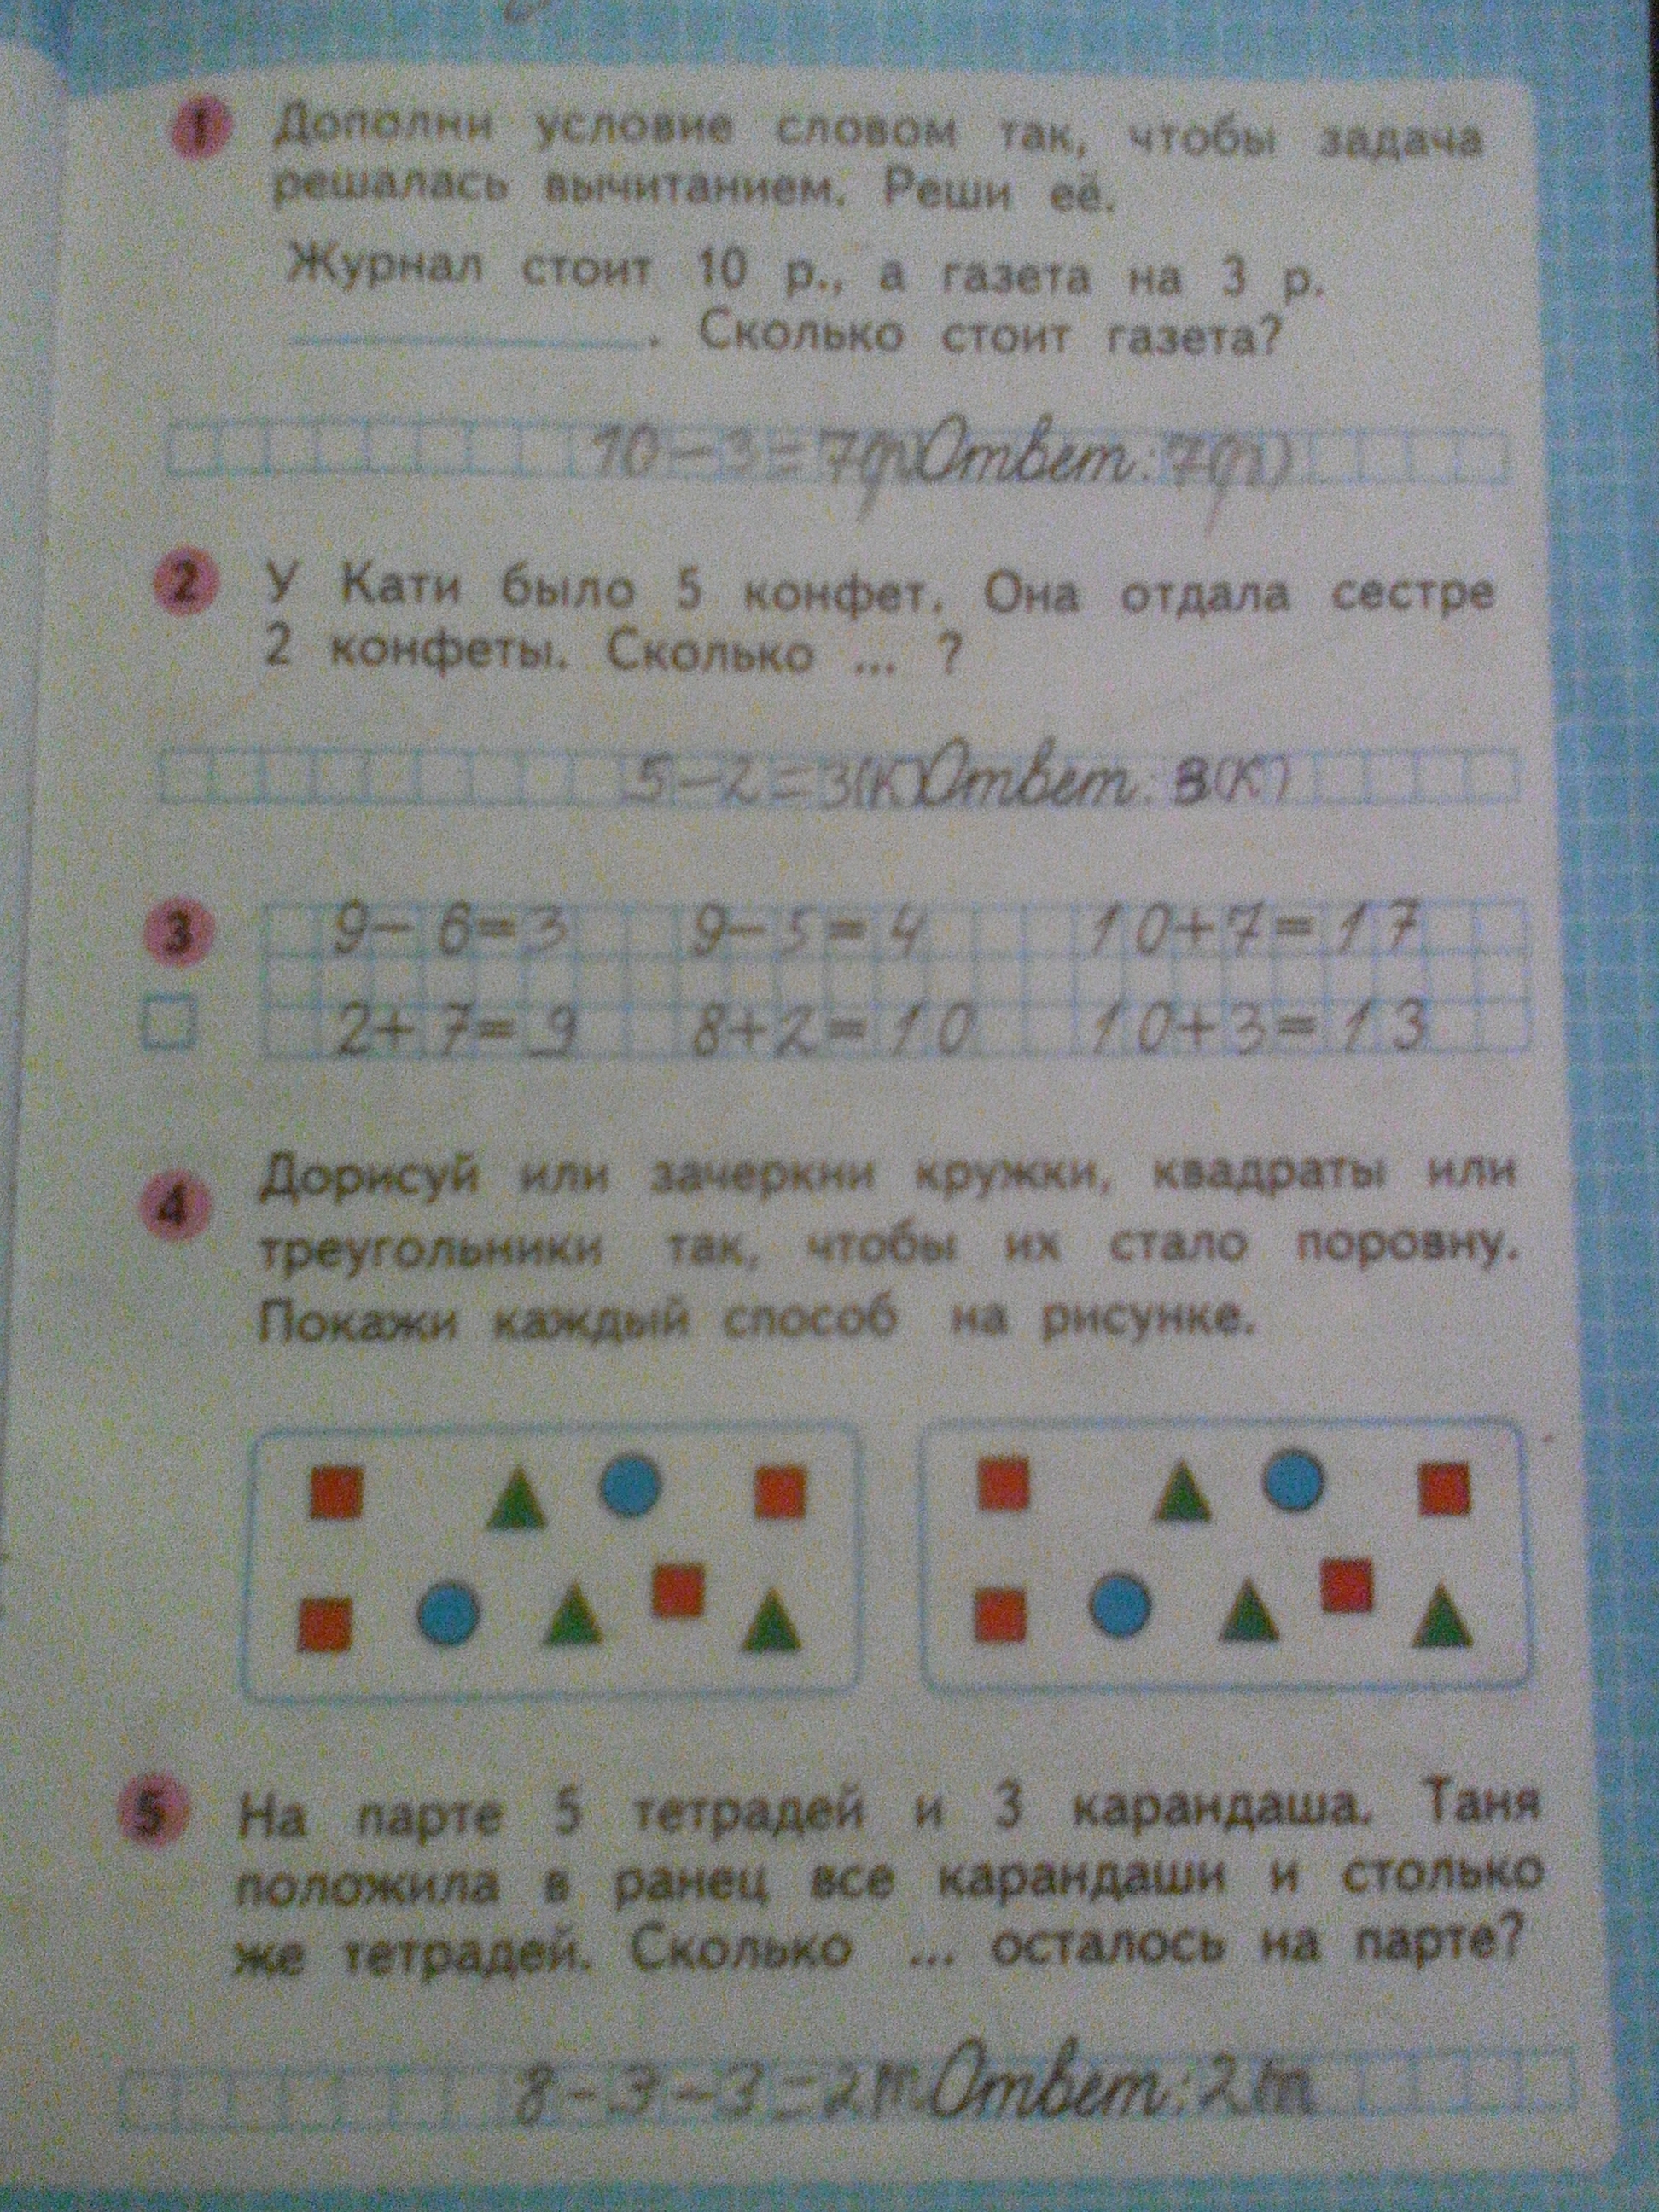 1 Дополни условие словом так, чтобы задача
решалась вычитанием. Реши её.
Журнал стоит 10 р., а газета на 3 р.
. Сколько стоит газета?
10-3=7(р)Ответ: 7(р)
2 У Кати было 5 конфет. Она отдала сестре
2 конфеты. Сколько ... ?
5-2=3(К)Ответ: 3(К)
3 9-6=3 9-5=4 10+7=17
2+7=9 8+2=10 10+3=13
4 Дорисуй или зачеркни кружки, квадраты или
треугольники так, чтобы их стало поровну.
Покажи каждый способ на рисунке.
5 На парте 5 тетрадей и 3 карандаша. Таня
положила в ранец все карандаши и столько
же тетрадей. Сколько ... осталось на парте?
8-3-3=2т Ответ: 2т